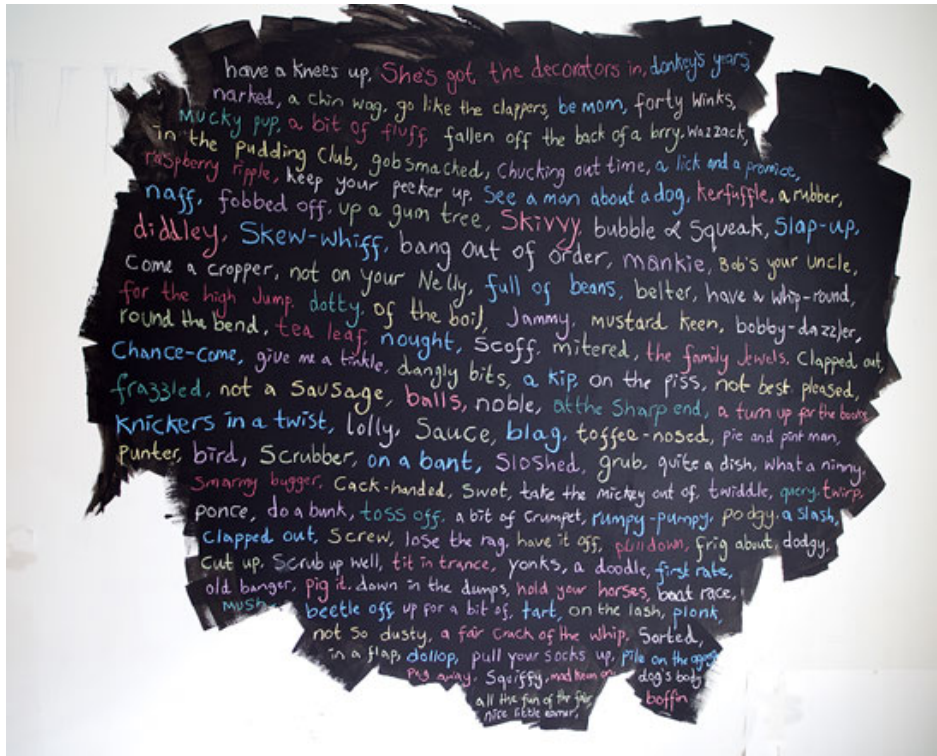 have a knees up, She's got the decorators in, donkey's years,
narked, a chin wag, go like the clappers, be mom, forty winks,
Mucky pup, a bit of fluff, fallen off the back of a lorry, Wazzack,
in the pudding club, gobsmacked, chucking out time, a lick and a promice,
raspberry ripple, keep your pecker up, See a man about a dog, kerfuffle, a rubber,
naff, fobbed off, up a gum tree, Skivvy, bubble & Squeak, Slap-up,
diddley, Skew-whiff, bang out of order, mankie, Bob's your uncle,
Come a cropper, not on your Nelly, full of beans, belter, have a whip-round,
for the high Jump, dotty, of the boil, Jammy, mustard keen, bobby-dazzler,
round the bend, tea leaf, nought, Scoff, mitered, the family Jewels, Clapped out,
Chance-come, give me a tinkle, dangly bits, a kip, on the piss, not best pleased,
frazzled, not a Sausage, balls, noble, at the Sharp end, a turn up for the books,
Knickers in a twist, lolly, Sauce, blag, toffee-nosed, pie and pint man,
punter, bird, Scrubber, on a bant, Sloshed, grub, quite a dish, what a ninny,
Smarmy bugger, Cack-handed, Swot, take the mickey out of, twiddle, query, twirp,
ponce, do a bunk, toss off, a bit of Crumpet, rumpy-pumpy, podgy, a slash,
clapped out, Screw, lose the rag, have it off, pull down, frig about, dodgy,
Cut up, Scrub up well, tit in trance, yonks, a doodle, first rate,
old banger, pig it, down in the dumps, hold your horses, boat race,
mush, beetle off, up for a bit of, tart, on the lash, plonk,
not so dusty, a fair crack of the whip, Sorted,
in a flap, dollop, pull your socks up, pile on the
away, Squiffy, mad keen on, dog's body
all the fun of the fair, boffin
nice little earner,